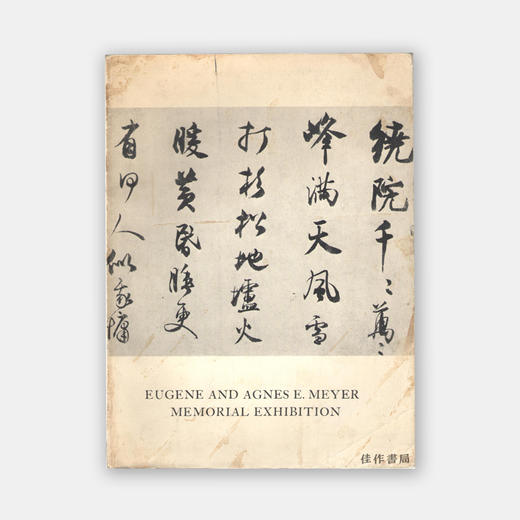 繞院千〻萬〻
峰滿天風雪
打杉松地壚火
暖黃昏睡更
有何人似我慵
EUGENE AND AGNES E. MEYER
MEMORIAL EXHIBITION
佳作書局